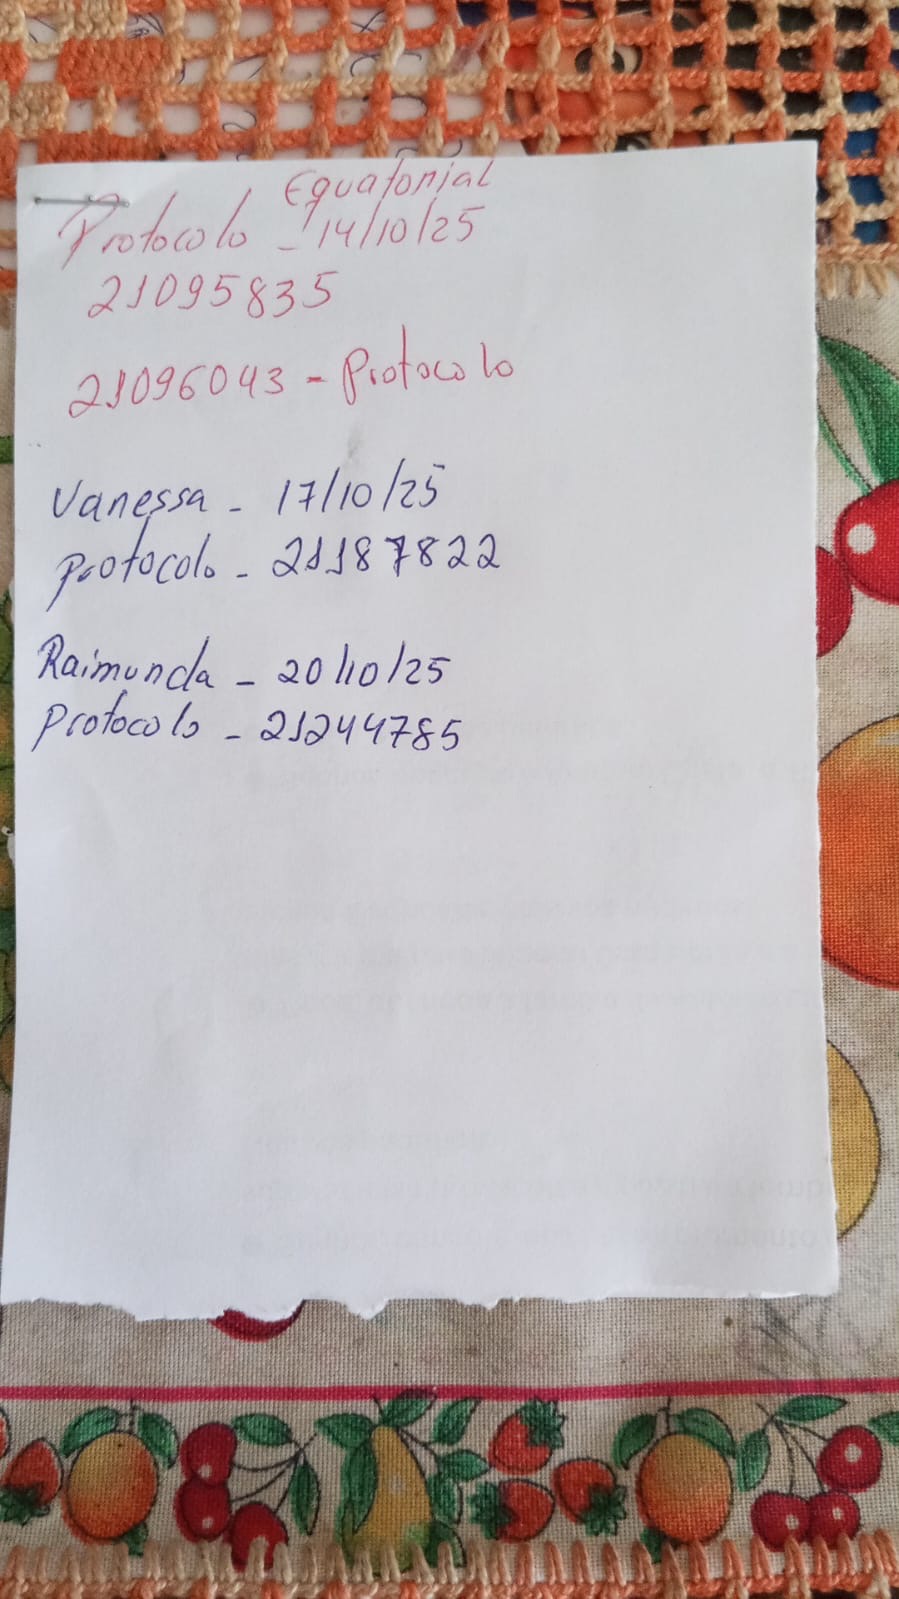 Equatorial
Protocolo - 14/10/25
21095835
21096043 - Protocolo
Vanessa - 17/10/25
protocolo - 21187822
Raimunda - 20/10/25
Protocolo - 21244785